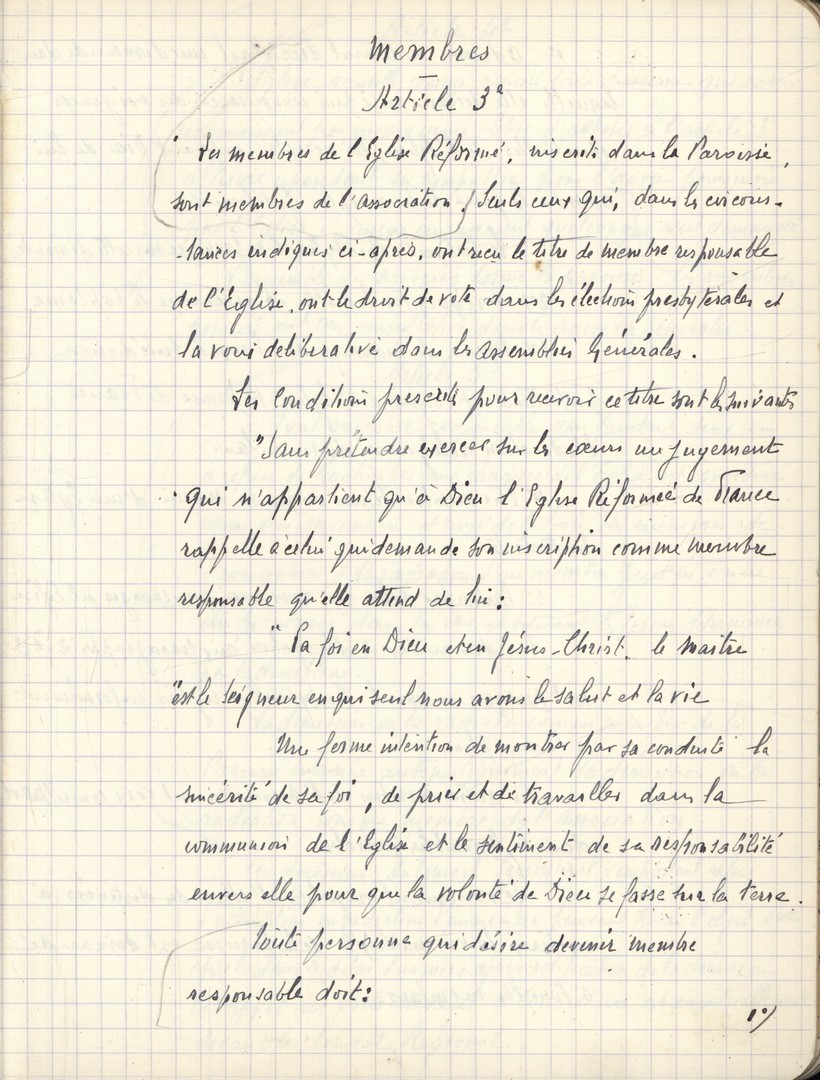 Membres
Article 3e
Les membres de l'Eglise Réformé, inscrits dans la Paroisse,
sont membres de l'association. Seuls ceux qui, dans les circons-
-tances indiqués ci-après, ont reçu le titre de membre responsable
de l'Eglise, ont le droit de vote dans les élections presbytérales et
la voix déliberative dans les Assemblées Générales.
Les Conditions prescrites pour recevoir ce titre sont les suivants
"Sans prétendre exercer sur les cœurs un jugement
qui n'appartient qu'à Dieu l'Eglise Réformée de France
rappelle à celui qui demande son inscription comme membre
responsable qu'elle attend de lui:
" La foi en Dieu et en Jésus-Christ. le maitre
"est le Seigneur en qui seul nous avons le salut et la vie
Une ferme intention de montrer par sa conduite la
sincérité de sa foi, de prier et de travailler dans la
communion de l'Eglise et le sentiment de sa responsabilité
envers elle pour que la volonté de Dieu se fasse sur la terre.
Toute personne qui désire devenir membre
responsable doit:
1°/